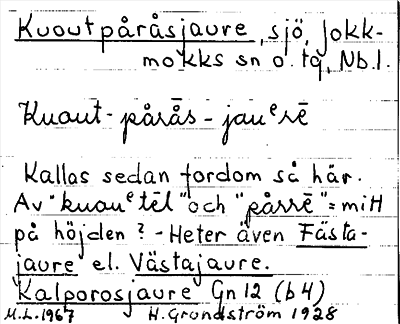 Kuoutpåråsjaure, sjö, Jokk-
mokks sn o. tg, Nb.l.
Kuout-pårås-jauᵉrē
Kallas sedan fordom så här.
Av "kuouᵉtēl" och "pårrē" = mitt
på höjden? - Heter även Fästa-
jaure el. Västajaure.
Kalporosjaure Gn 12 (b4)
M.L. 1967 H. Grundström 1928